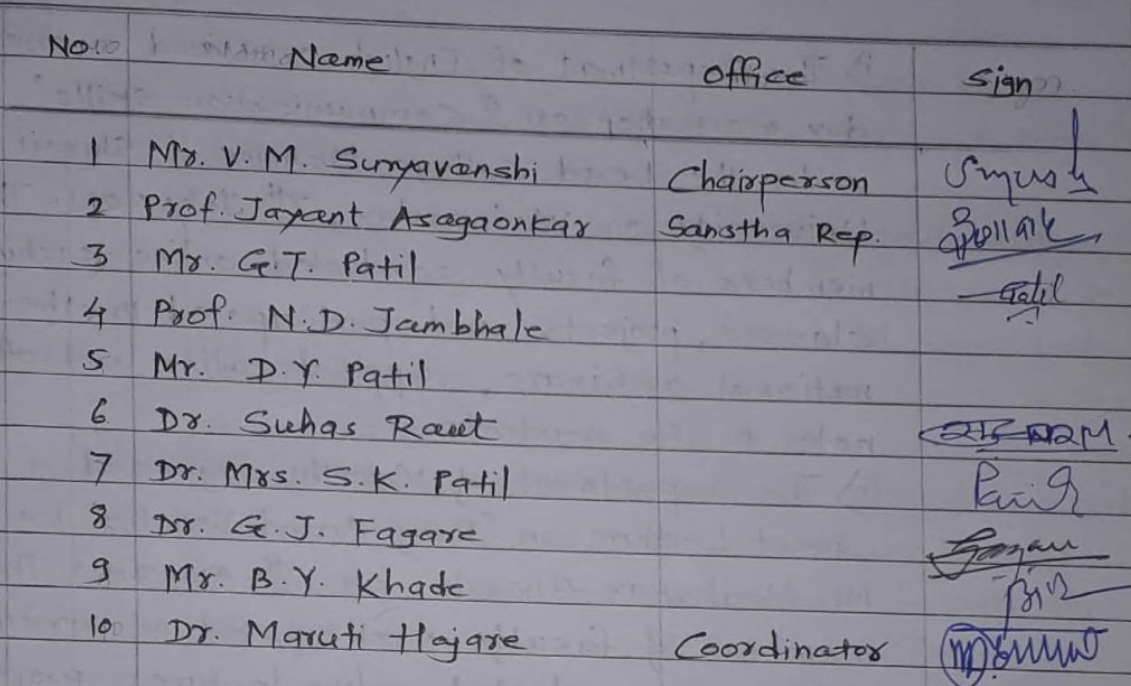 No. Name office Sign
1 Mr. V. M. Suryavanshi Chairperson
2 Prof. Jayant Asagaonkar Sanstha Rep.
3 Mr. G.T. Patil Patil
4 Prof. N.D. Jambhale
5 Mr. D.Y. Patil
6 Dr. Suhas Raut
7 Dr. Mrs. S.K. Patil
8 Dr. G. J. Fagare
9 Mr. B.Y. Khade
10 Dr. Maruti Hajare Coordinator